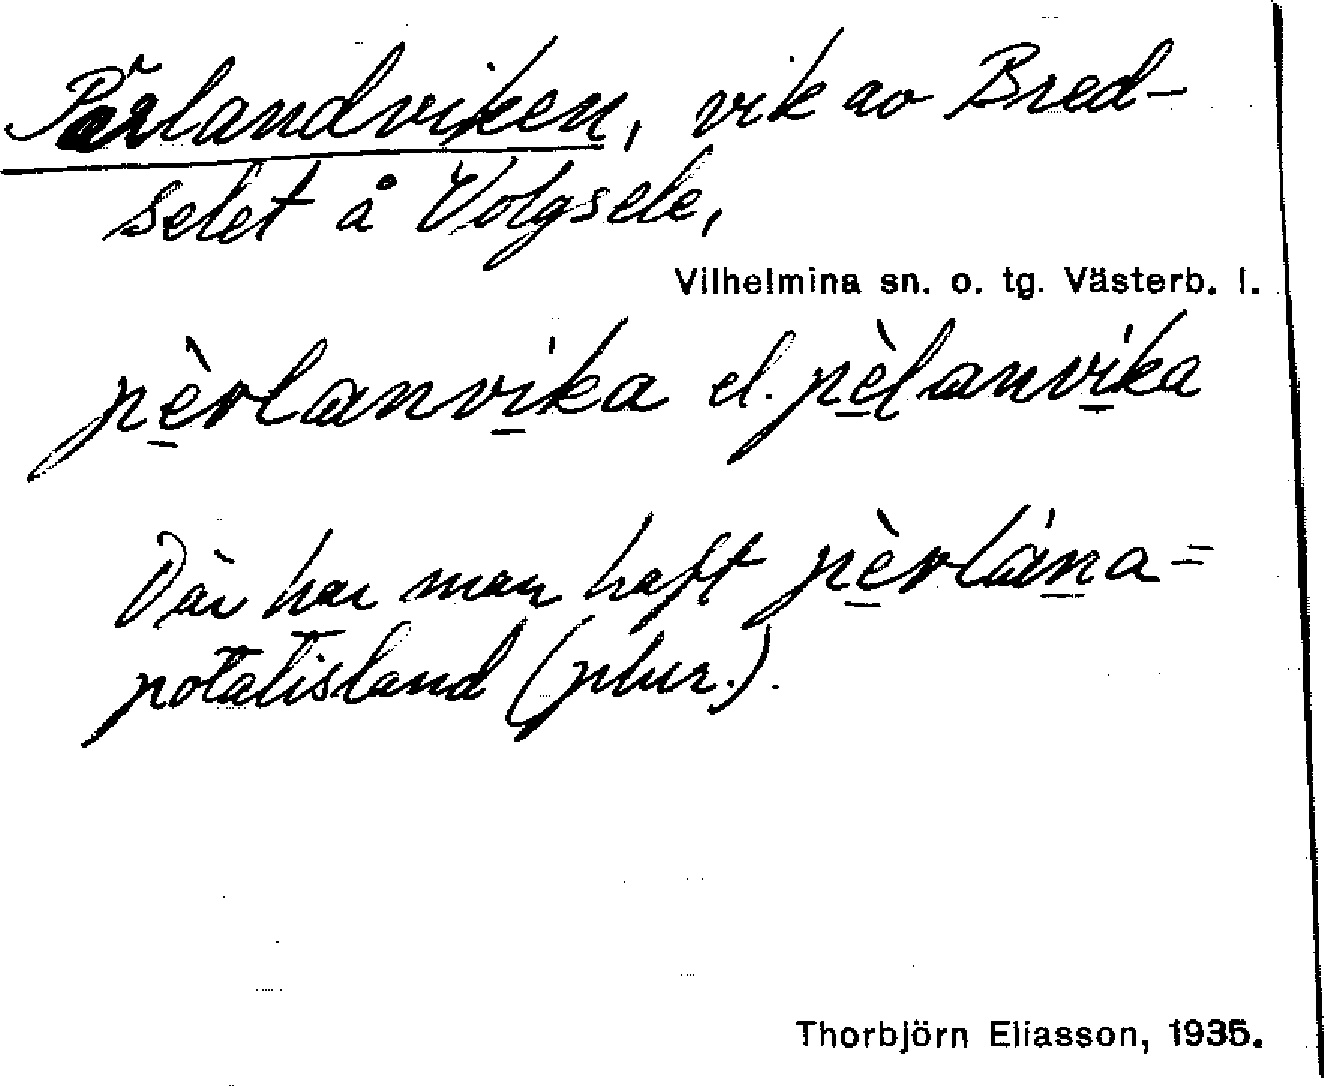 Pärlandviken, vik av Bred-
selet å Volgsele,
Vilhelmina sn. o. tg. Västerb. l.
pèrlanvíka el. pèlanvíka
Där har man haft pèrlána =
potatisland (plur.).
Thorbjörn Eliasson, 1935.